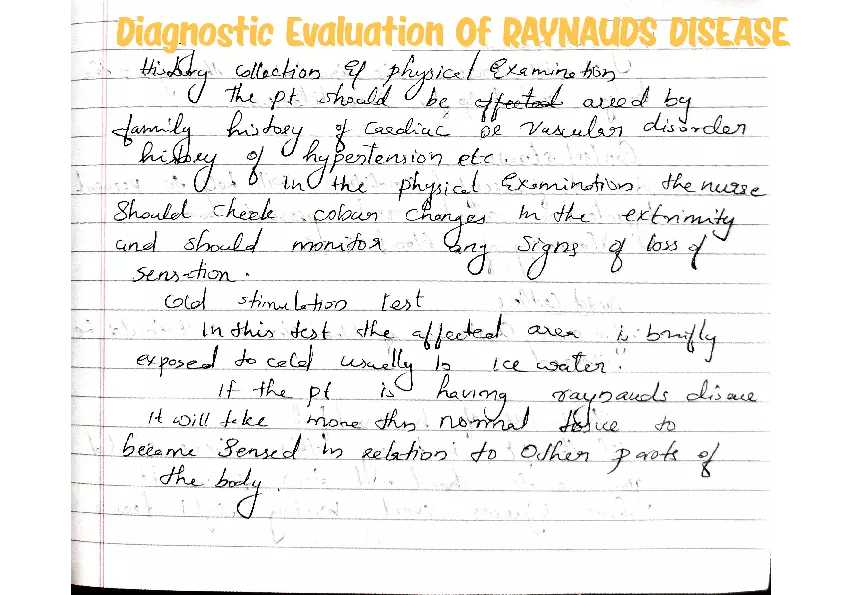 Diagnostic Evaluation Of RAYNAUDS DISEASE
History collection & physical Examination
The pt should be affected asked by
family history of Cardiac or Vascular disorder
history of hypertension etc.
In the physical Examination the nurse
Should check colour changes in the extrimity
and should monitor any signs of loss of
senstion.
Cold stimulation test
In this test the affected area is briefly
exposed to cold usually is ice water.
If the pt is having raynauds disease
It will take more thn normal to
became Sensed in relation to Other parts of
the body.